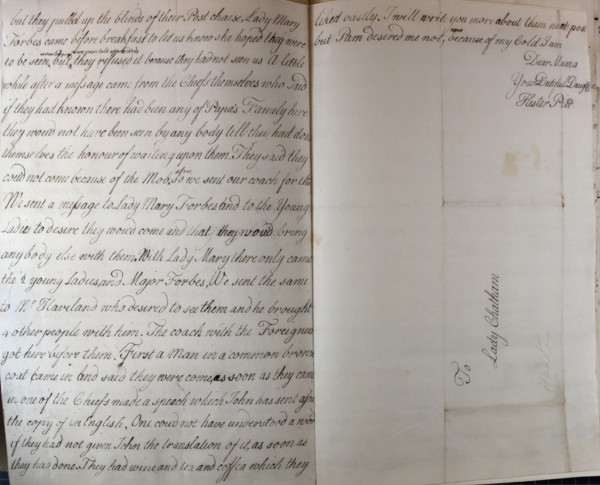 but they pulled up the blinds of their Post chaise, Lady Mary
Forbes came before breakfast to let us know she hoped they were
to be seen, but, they refused it because they had not seen us A little
while after a message came from the Chiefs themselves who Said
if they had known there had been any of Papa's Family here
they would not have been seen by any body till they had done
themselves the honour of waiting upon them. They said they
could not come because of the Mob, So we sent our coach for th
We sent a message to Lady Mary Forbes and to the Young
Ladies to desire they would come and that they would bring
anybody else with them. With Lady Mary there only came
the 2 young Ladies and Major Forbes, We sent the same
to Mr Haviland who desired to see them and he brought
4 other people with him. The coach with the Foreigners
got here before them. First a Man in a common brown
coat came in and said they were come, as soon as they came
in, one of the Chiefs made a speech which John has sent
the copy of in English, One could not have understood a word
if they had not given John the translation of it, as soon as
they had done. They had wine and tea and coffea which they
liked vastly. I will write you more about them next post
but Pam desired me not, because of my Cold I am
Dear Mama
Your Dutiful Daught
Hester Pitt
To
Lady Chatham